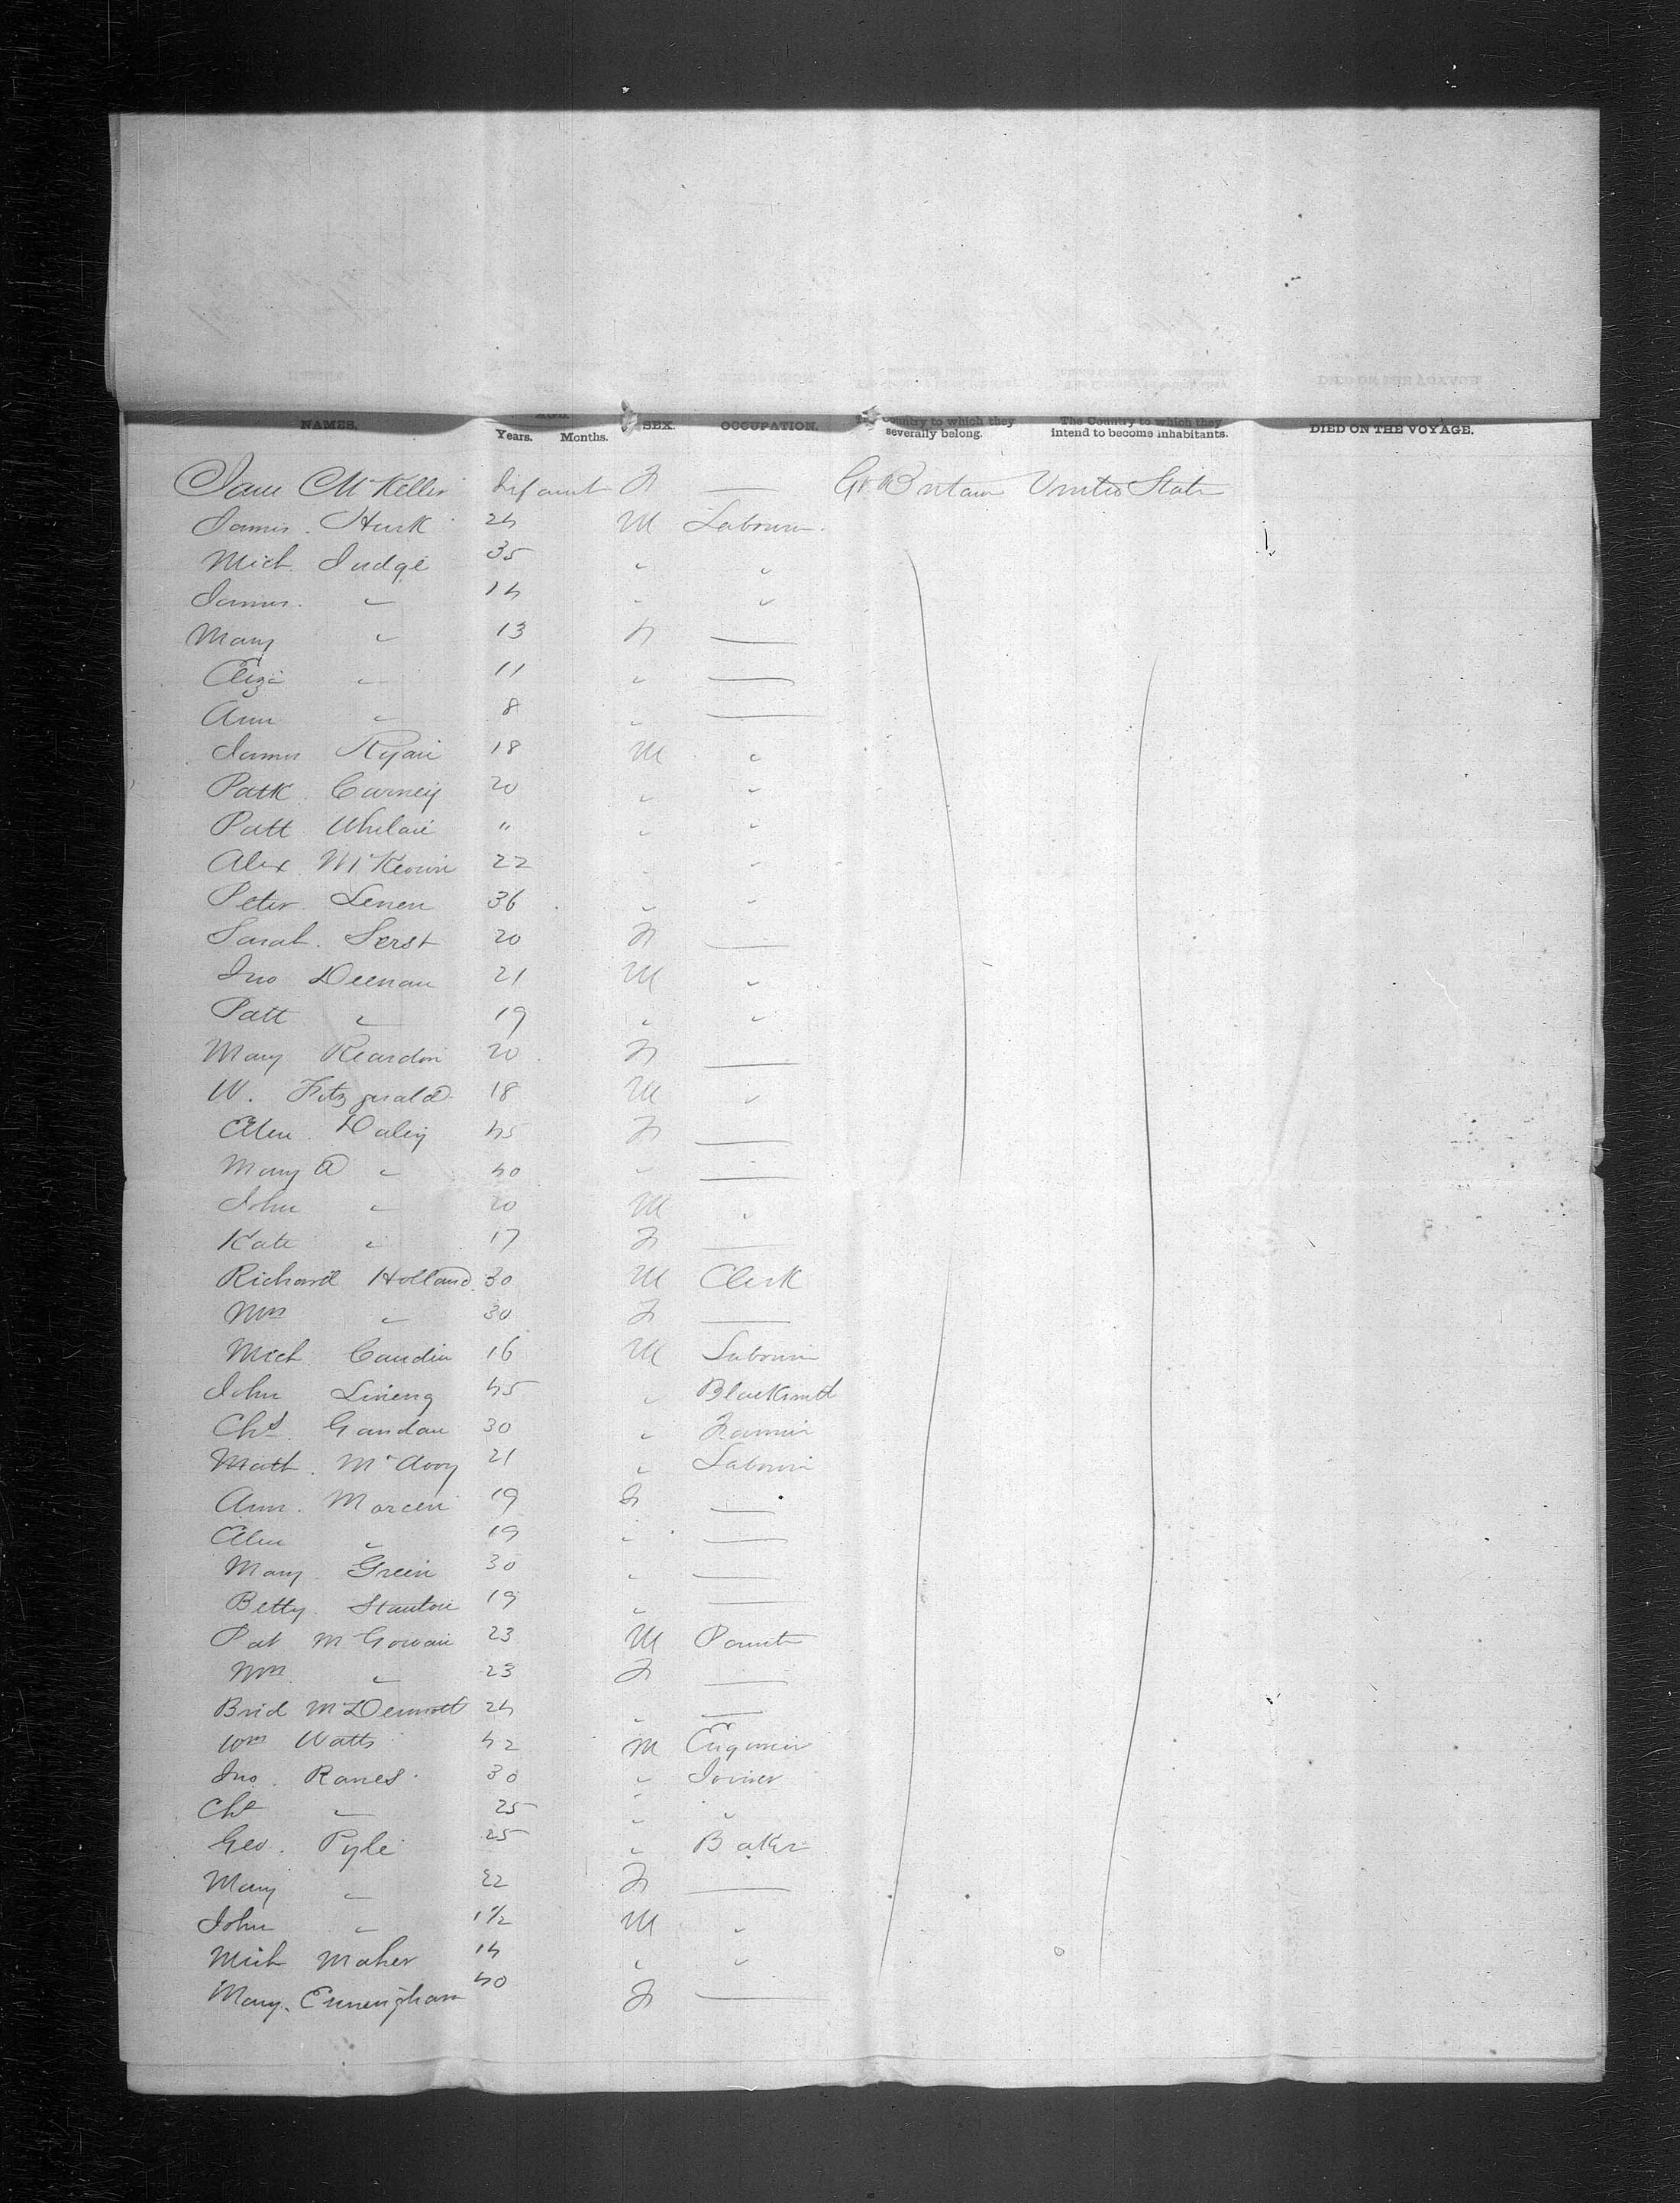 NAMES. AGE. Years. Months. SEX. OCCUPATION. The Country to which they severally belong. The Country to which they intend to become inhabitants. DIED ON THE VOYAGE.
Jane McKeller Infant F — Gt Britain United State
James Husk 24 M Labourer
Mich. Judge 35 " "
James. " 14 " "
Mary " 13 F —
Eliza " 11 " —
Ann " 8 " —
James Ryan 18 M "
Patk. Carney 20 " "
Patt Whelan " " "
Alex McKeown 22 " "
Peter. Lenen 36 " "
Sarah. Serst 20 F —
Jno Deenan 21 M "
Patt " 19 " "
Mary Reardon 20 F —
W. Fitzgerald 18 M "
Ellen. Daley 45 F —
Mary A " 40 " —
John " 20 M "
Kate " 17 F —
Richard Holland 30 M Clerk
Mrs " 30 F —
Mich Caudin 16 M Labourer
John 45 " Blacksmith
Chs. Gandan 30 " Farmer
Math. McAvoy 21 " Labourer
Ann. 19 F —
Ellen " 19 " —
Mary. Green 30 " —
Betty. Stanton 19 " —
Pat McGowan 23 M Painter
Mrs " 23 F —
Brid McDermott 24 " —
Wm Watts 42 M Engineer
Jno. Ranes. 30 " Joiner
Chs " 25 " "
Geo. Pyle 25 " Baker
Mary " 22 F —
John " 1½ M "
Mich Maher 14 " "
Mary. Cunningham 40 F —